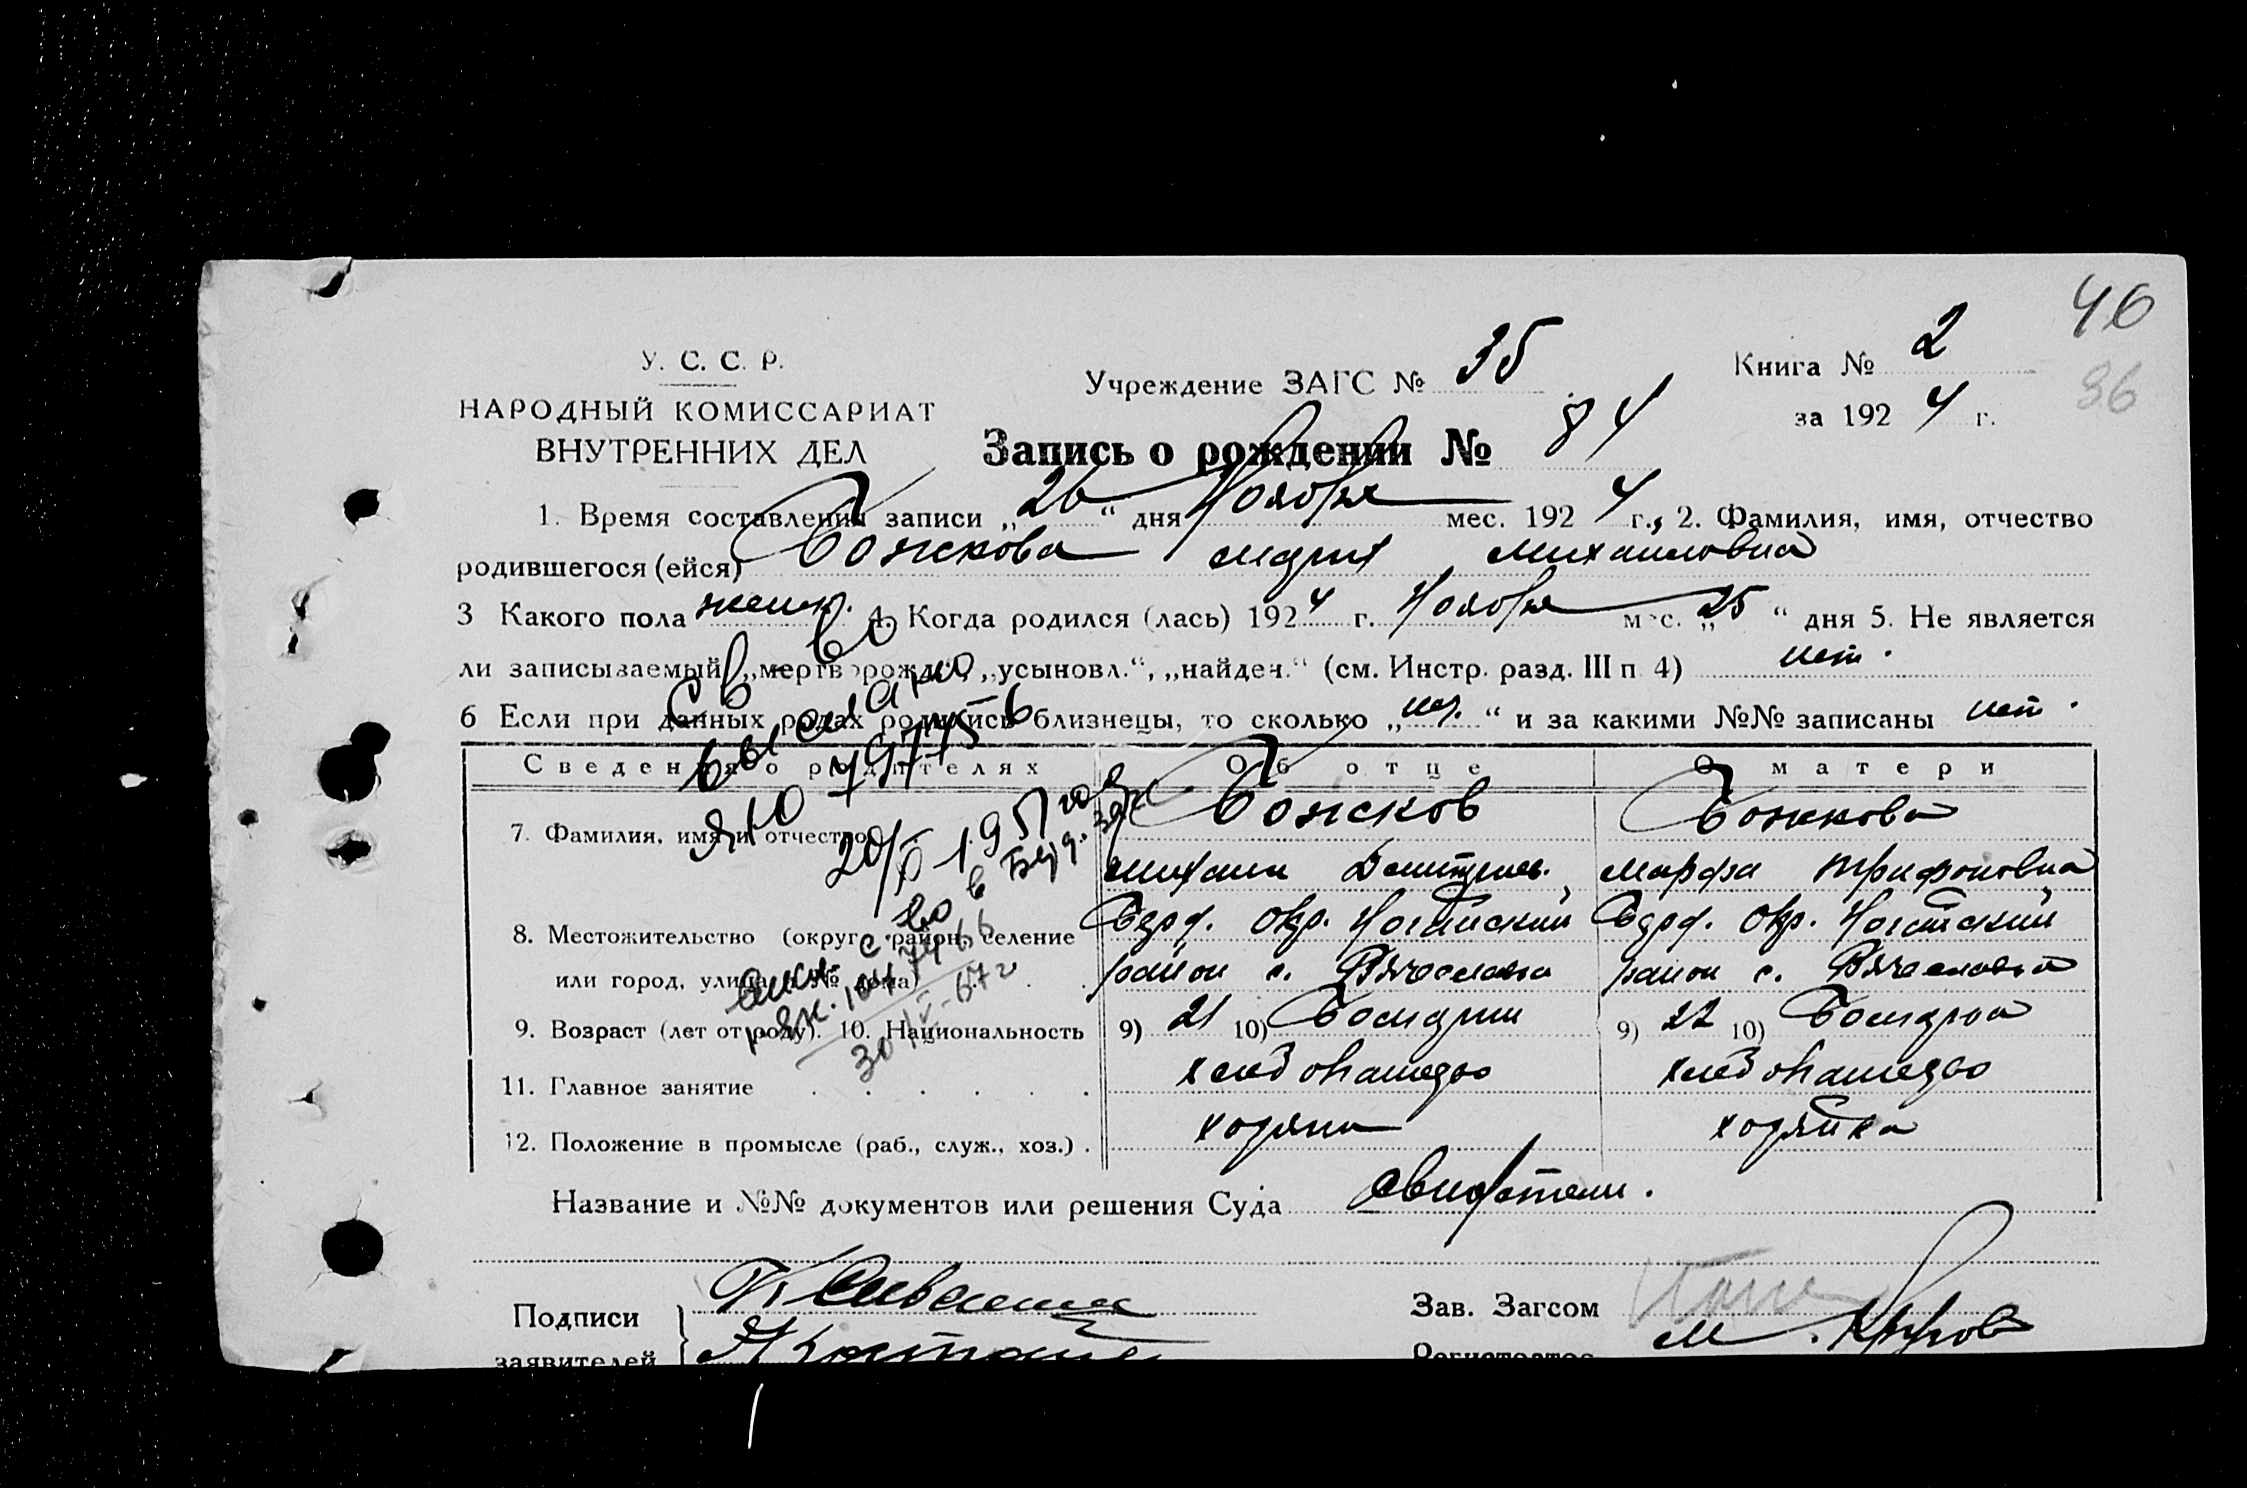 40
86
У. С. С. Р.
НАРОДНЫЙ КОМИССАРИАТ
ВНУТРЕННИХ ДЕЛ
Учреждение ЗАГС № 35
Книга № 2
за 1924 г.
Запись о рождении № 84
1. Время составления записи „26“ дня Ноября мес. 1924 г., 2. Фамилия, имя, отчество
родившегося (ейся) Божкова Мария Михайловна
3 Какого пола женск. 4. Когда родился (лась) 1924 г. Ноября мес. „25“ дня 5. Не является
ли записываемый „мертворожд.“, „усыновл.“, „найден.“ (см. Инстр. разд. III п 4) нет.
6 Если при данных родах родились близнецы, то сколько „нет.“ и за какими №№ записаны нет.
Св-во
выслано
ЯЮ
20/V 1951 года
Сведения о родителях Об отце О матери
7. Фамилия, имя и отчество Божков Божкова
Михаил Марфа Трифоновна
8. Местожительство (округ, район, селение Берд. окр. Ногайский Бердр. окр. Ногайский
или город, улица и № дома) район с. Вячеславка район с. Вячеславка
9. Возраст (лет от роду). 10. Национальность 9) 21 10) Болгарин 9) 22 10) Болгарка
11. Главное занятие хлебопашество хлебопашество
12. Положение в промысле (раб., служ., хоз.) хозяин хозяйка
Название и №№ документов или решения Суда
Подписи
заявителей
Зав. Загсом
Регистратор